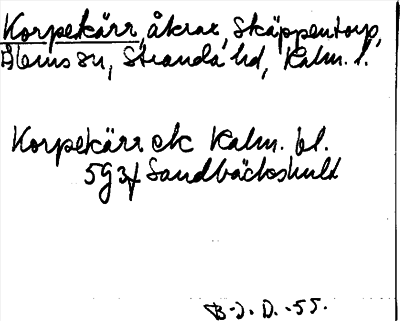 Korpekärr, åkrar, Skäppentorp,
Ålems sn, Stranda hd, Kalm. l.
Korpekärr ek Kalm. bl.
5g3f Sandbäckshult
B-J. D. -55.